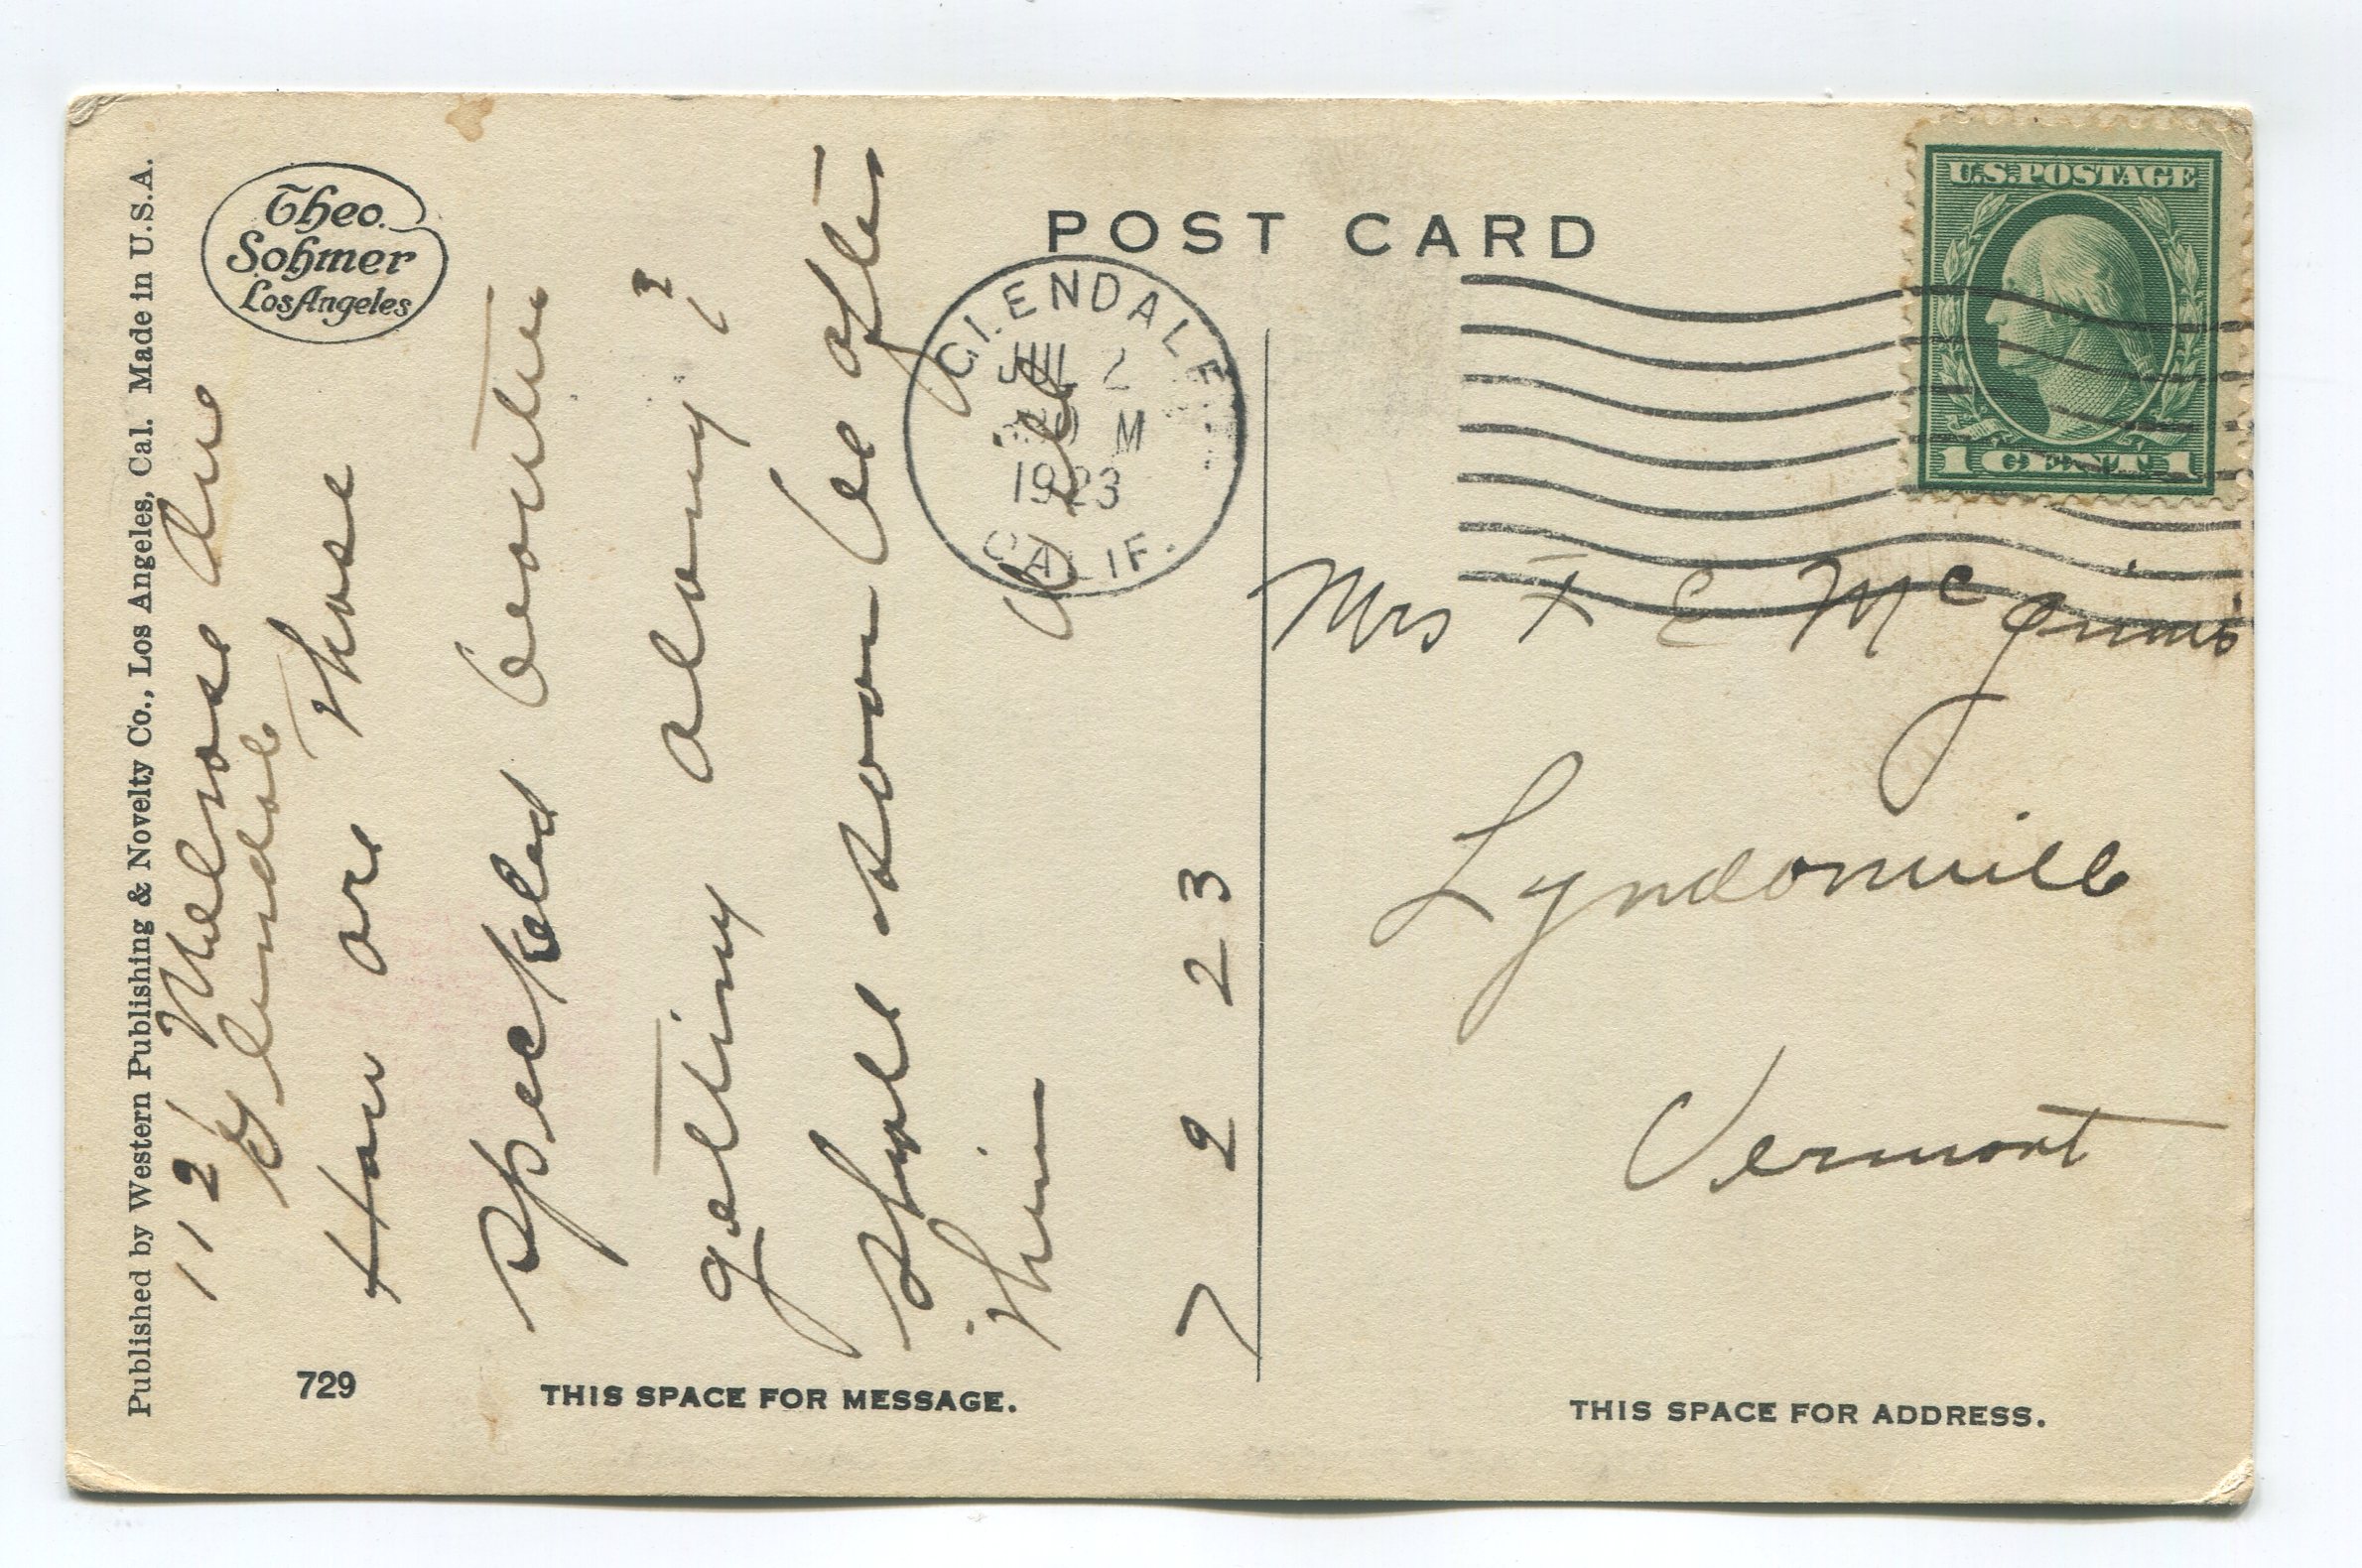 Published by Western Publishing & Novelty Co., Los Angeles, Cal. Made in U.S.A.
Theo.
Sohmer
Los Angeles
112 Melrose Ave
Glendale
How are those
speckled beauties
getting along?
Shall soon be after
them
Will
7 2 23
729
THIS SPACE FOR MESSAGE.
POST CARD
GLENDALE
JUL 2
M
1923
CALIF.
U.S. POSTAGE
1 CENT 1
Mrs F E McGinnis
Lyndonville
Vermont
THIS SPACE FOR ADDRESS.